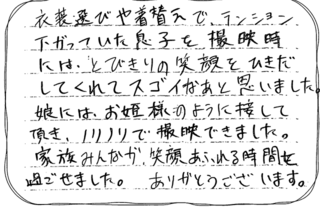 衣装選びや着替えで、テンション
下がっていた息子を撮映時
には、とびきりの笑顔をひきだ
してくれてスゴイなぁと思いました。
娘には、お姫様のように接して
頂き、ノリノリで撮映できました。
家族みんなが、笑顔あふれる時間を
過ごせました。 ありがとうございます。